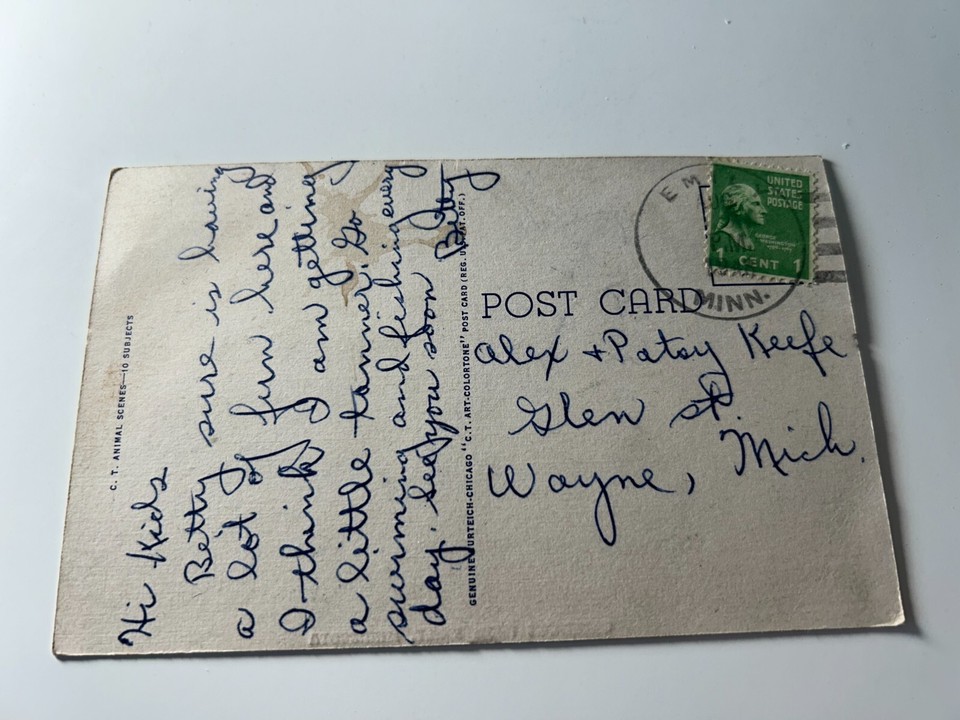 C. T. ANIMAL SCENES—10 SUBJECTS
Hi Kids
Betty sure is having
a lot of fun here and
I think I am getting
a little tanner. Go
swiming and fishing every
day. See you soon Betty
GENUINE CURTEICH-CHICAGO "C.T. ART-COLORTONE" POST CARD (REG. U.S. PAT. OFF.)
POST CARD
EM
MINN.
UNITED
STATES
POSTAGE
GEORGE
WASHINGTON
1 CENT 1
Alex + Patsy Keefe
Glen st.
Wayne, Mich.